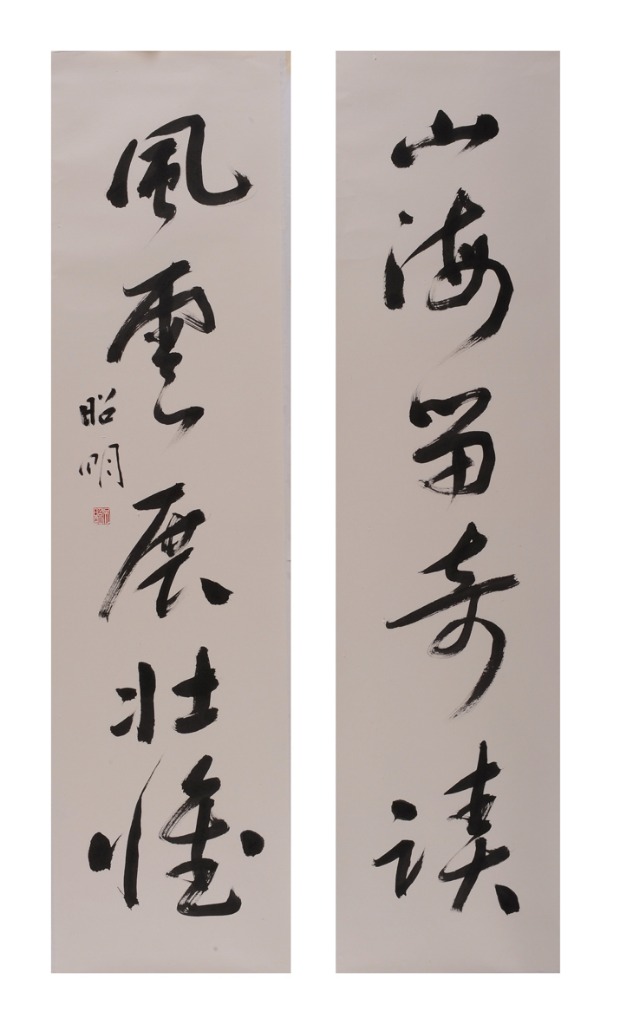 山海留奇蹟
風雲展壯懷
昭明